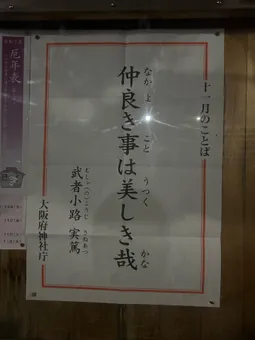 十一月のことば
仲良き事は美しき哉
なかよ こと うつく かな
武者小路 実篤
むしゃのこうじ さねあつ
大阪府神社庁
厄年表